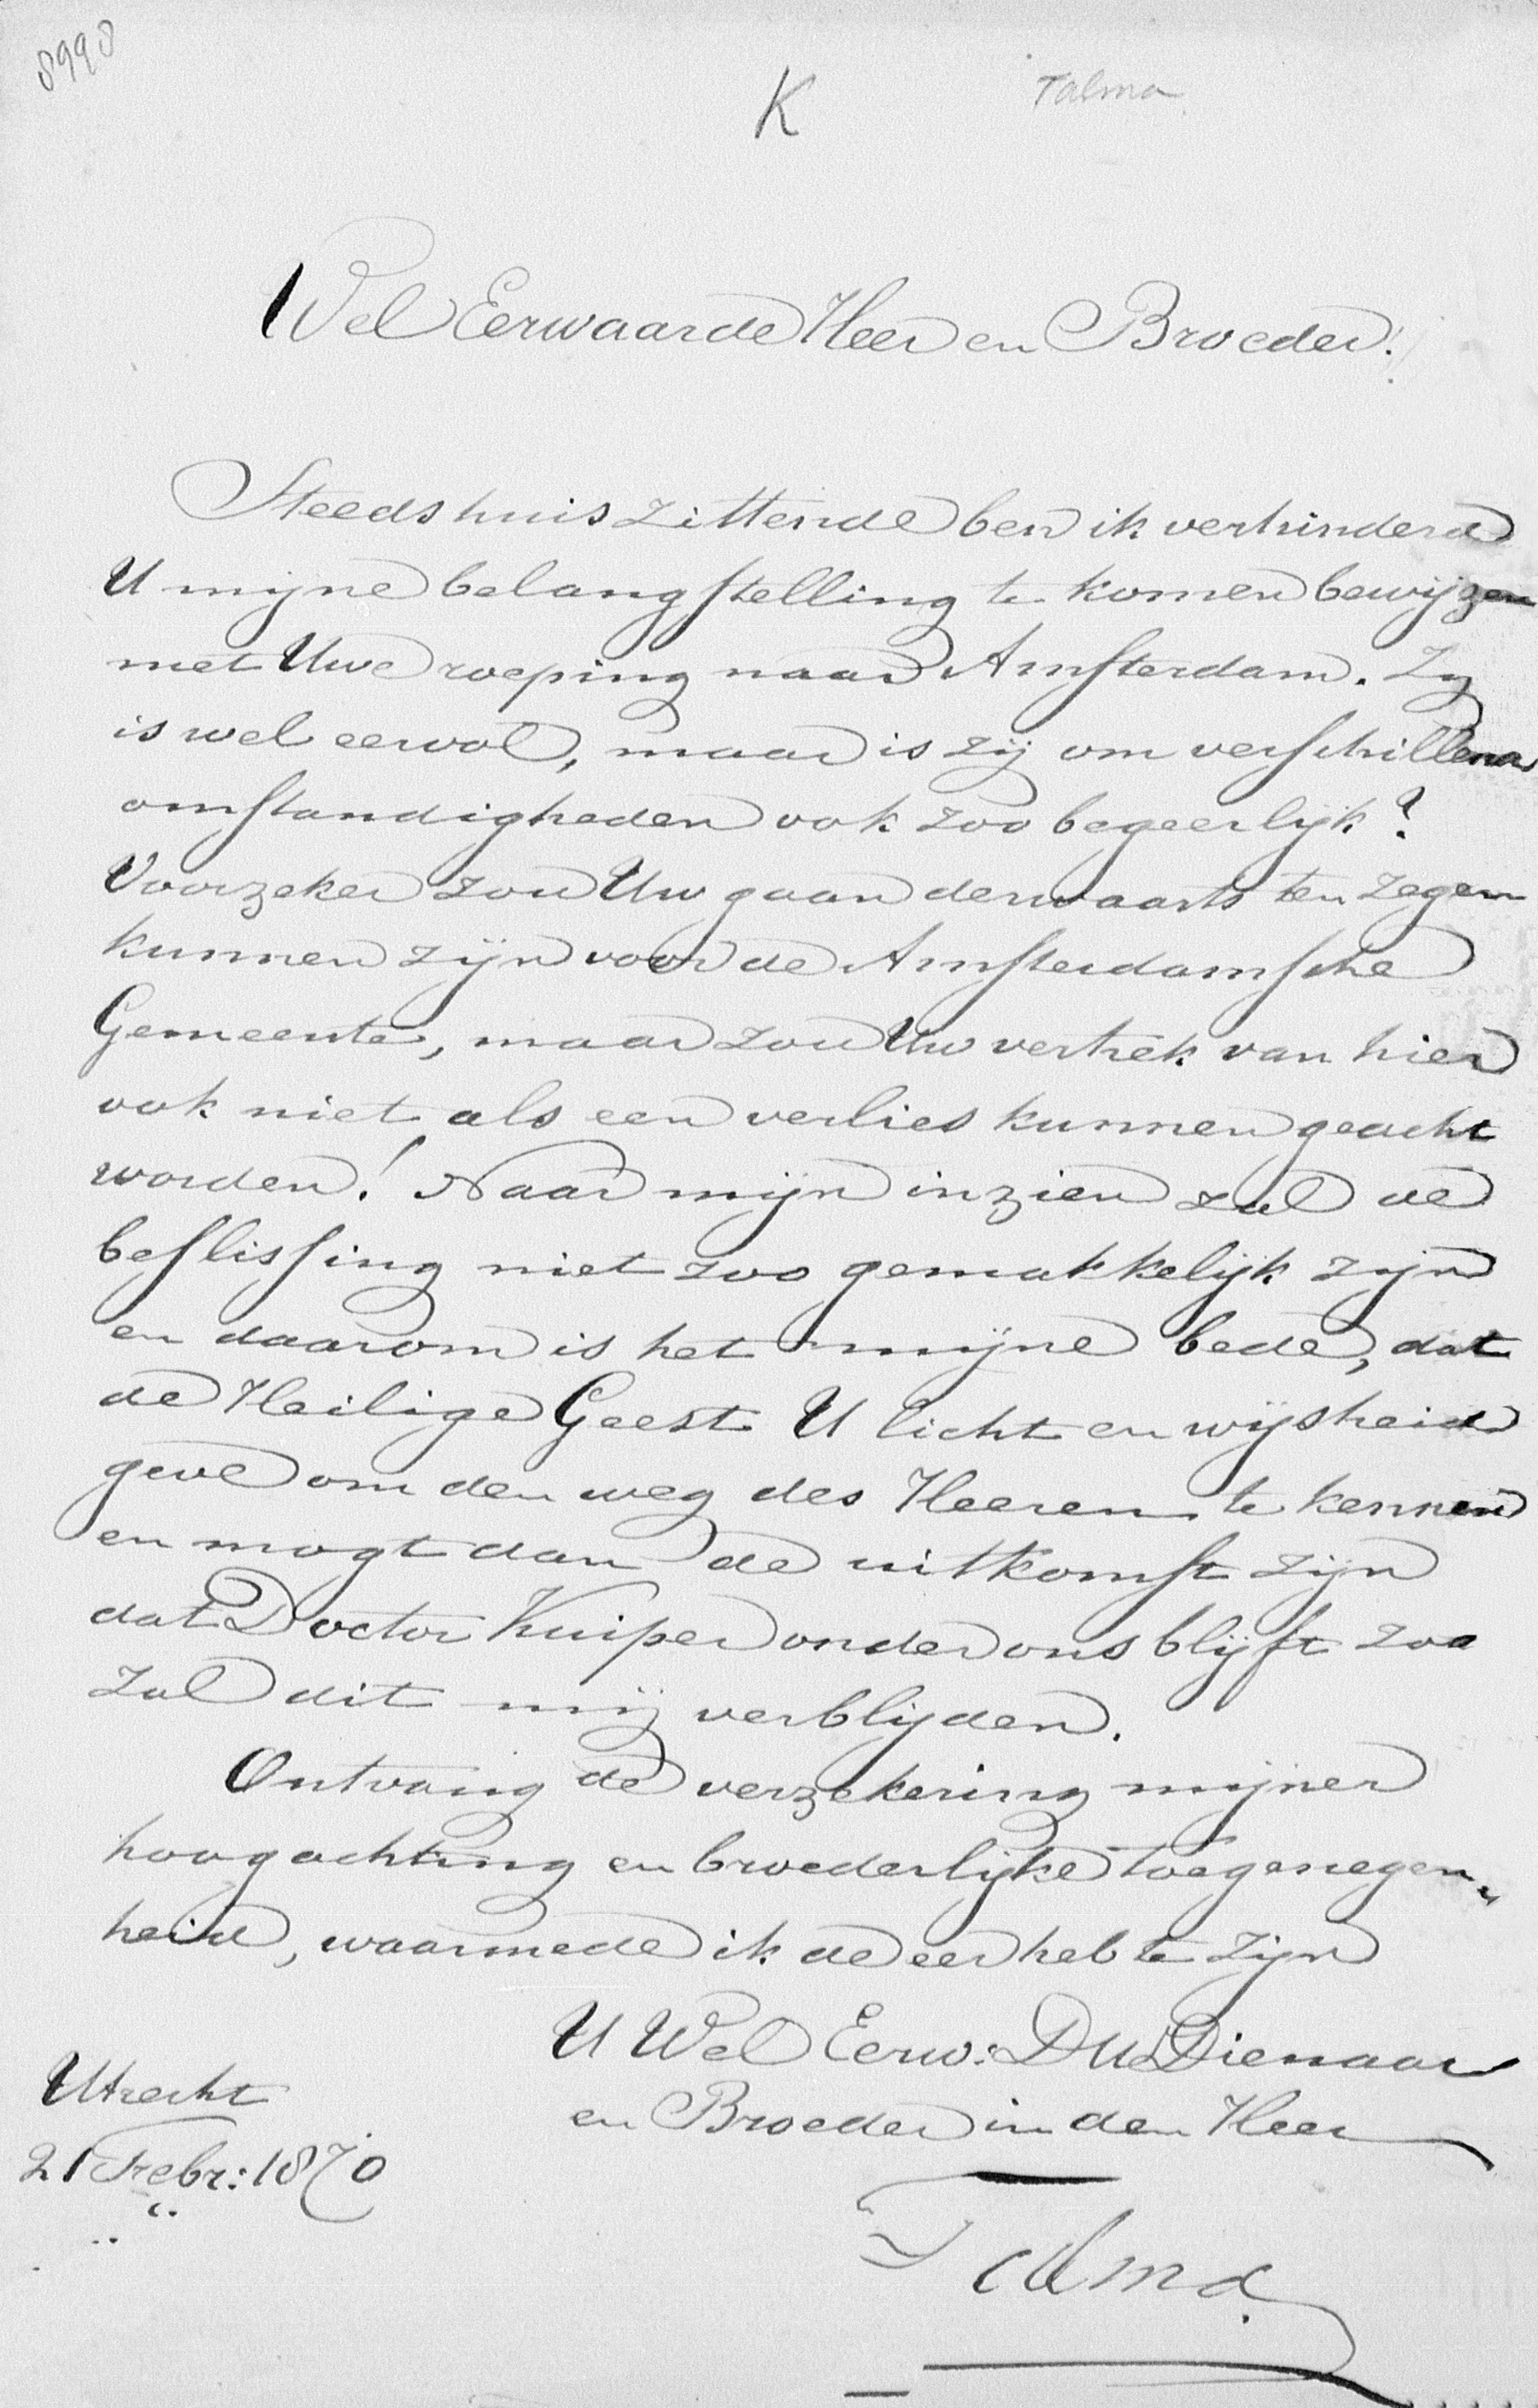 8998
K
Talma
Wel Eerwaarde Heer en Broeder!
Steeds huis zittende ben ik verhinderd
U mijne belangstelling te komen bewijzen
met Uwe roeping naar Amsterdam. Zy
is wel eervol, maar is zij om verschillend
omstandigheden ook zoo begeerlijk?
Voorzeker zou Uw gaan derwaarts ten zegen
kunnen zijn voor de Amsterdamsche
Gemeente, maar zou Uw vertrek van hier
ook niet als een verlies kunnen geacht
worden! Naar mijn inzien zal de
beslissing niet zoo gemakkelijk zijn
en daarom is het mijne bede, dat
de Heilige Geest U licht en wijsheid
geve om den weg des Heeren te kennen
en mogt dan de uitkomst zijn
dat Doctor Kuiper onder ons blijft zoo
zal dit mij verblijden.
Ontvang de verzekering mijner
hoogachting en broederlijke toegenegen„
heid, waarmede ik de eer heb te zijn
U Wel Eerw: DW Dienaar
en Broeder in den Heer
Talma
Utrecht
21 Febr: 1870